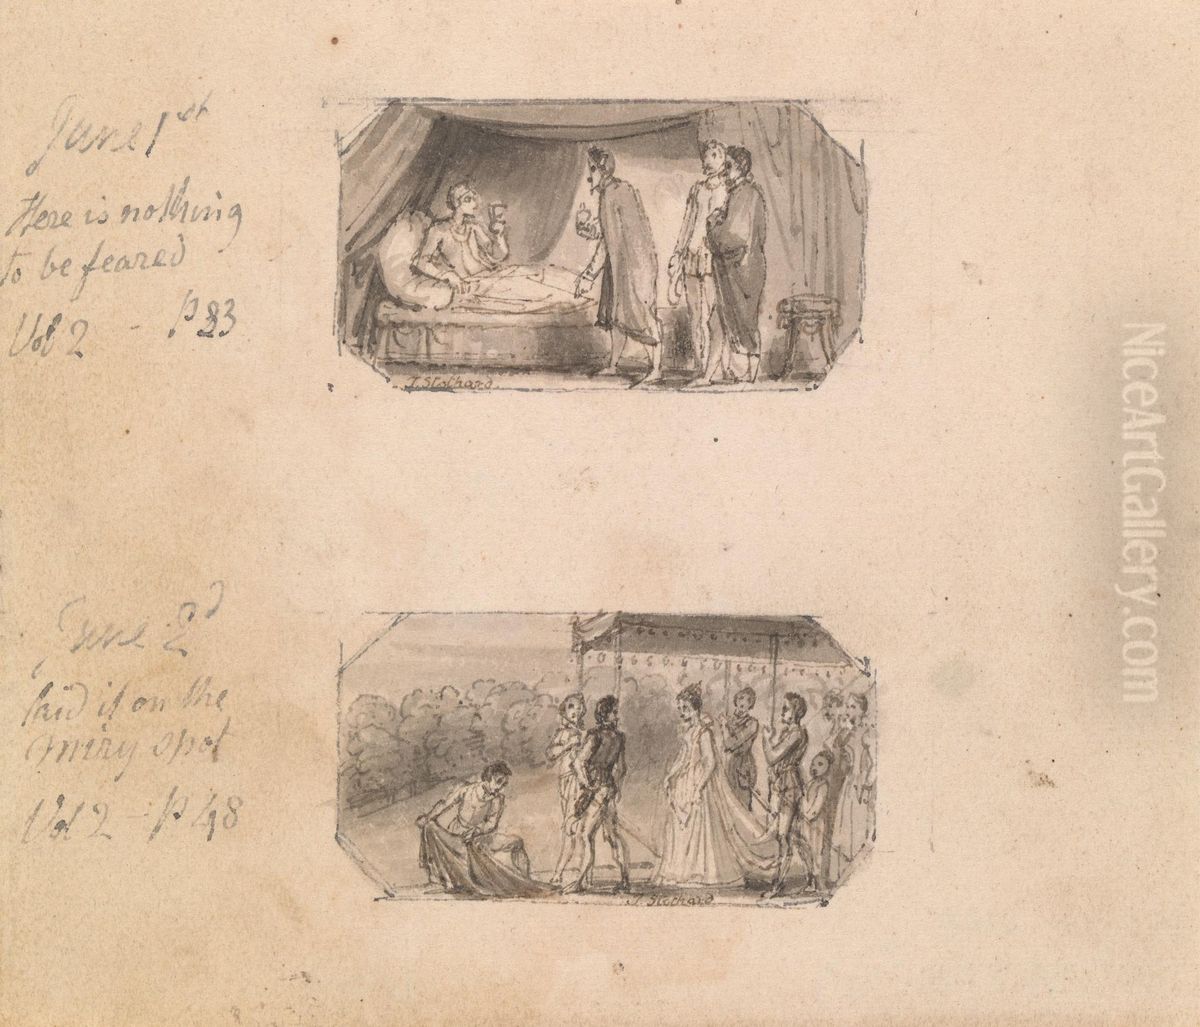 June 1st
Here is nothing
to be feared
Vol 2 - P 23
T. Stothard.
June 2d
laid it on the
miry spot
Vol 2 - P 48
T. Stothard
NiceArtGallery.com